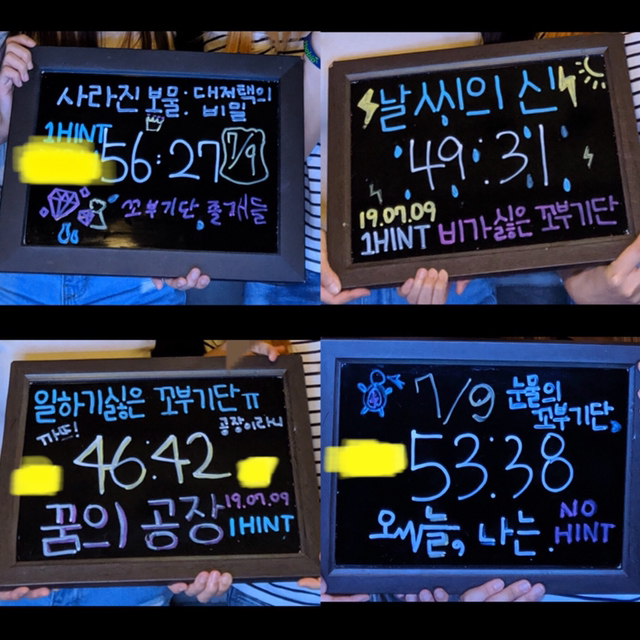 사라진 보물: 대저택의
비밀
1HINT
56:27 7/9
꼬부기단 졸개들
날씨의 신
49:31
19.07.09
1HINT 비가싫은 꼬부기단
일하기싫은 꼬부기단ㅠ
공장이라니
46:42
꿈의 공장
19.07.09
1HINT
7/9 눈물의
꼬부기단
53:38
오늘, 나는.
NO
HINT